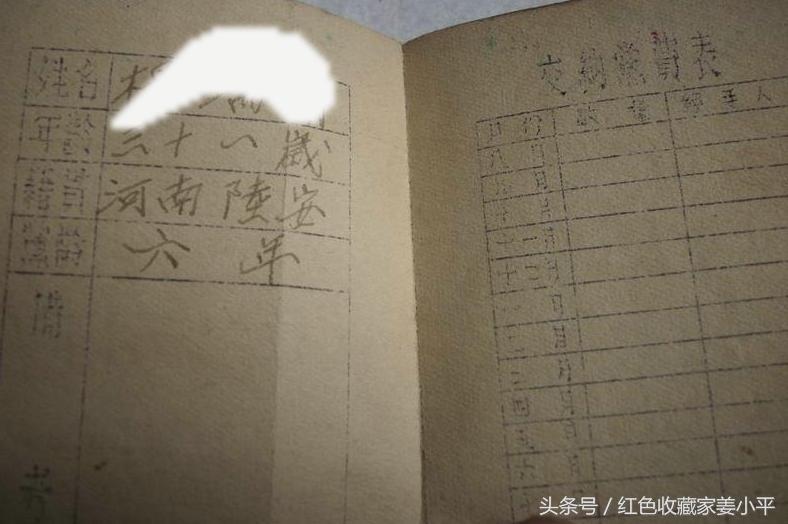 姓名
年齡 三十一歲
籍貫 河南陸安
黨齡 六年
備
考
交納黨費表
月份 數量 經手人
八月
九月
十月
十一月
十二月
一月
二月
三月
四月
五月
六月
头条号 / 红色收藏家姜小平